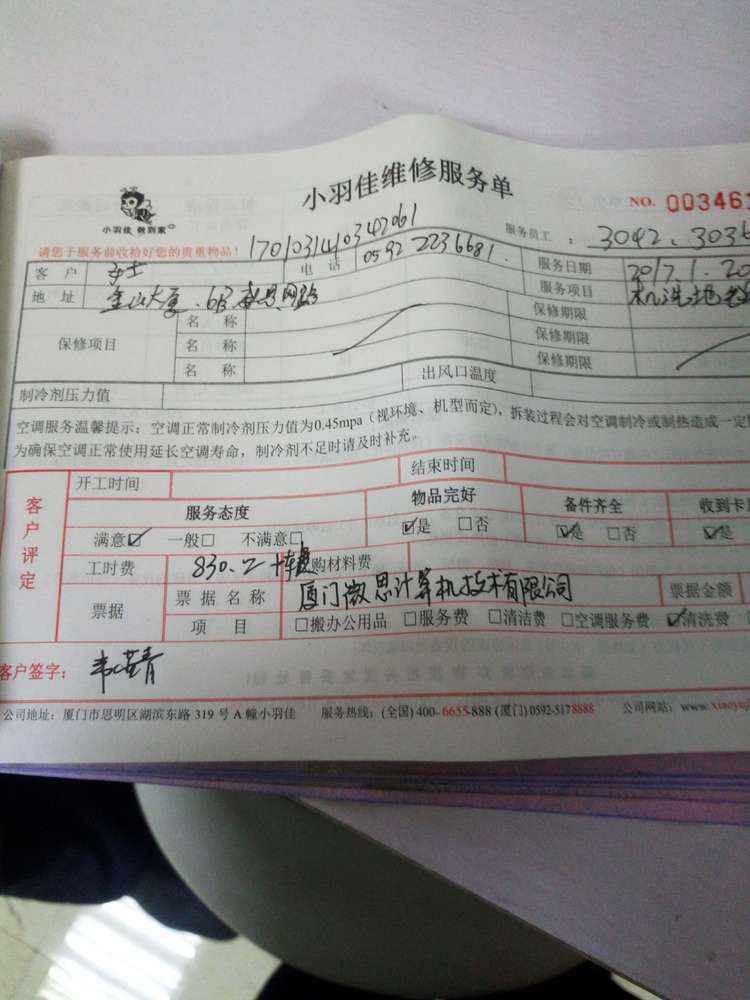 小羽佳维修服务单
小羽佳 做到家
NO. 003461
请您于服务前收拾好您的贵重物品！ 1701031410342061
服务员工 ： 3042、3036
客 户 女士 电 话 0592 2236681. 服务日期 2017.1.20
地 址 金山大厦.6B 网络 服务项目 机洗地
保修项目 名 称 保修期限
名 称 保修期限
名 称 保修期限
制冷剂压力值 出风口温度
空调服务温馨提示：空调正常制冷剂压力值为0.45mpa（视环境、机型而定），拆装过程会对空调制冷或制热造成一定
为确保空调正常使用延长空调寿命，制冷剂不足时请及时补充。
客户评定
开工时间 结束时间
服务态度 物品完好 备件齐全 收到卡
满意☑ 一般□ 不满意□ ☑是 □否 ☑是 □否 ☑是
工时费 830.2 购材料费
票据 票 据 名 称 厦门微思计算机技术有限公司 票据金额
项 目 □搬办公用品 □服务费 □清洁费 □空调服务费 ☑清洗费
客户签字：
公司地址：厦门市思明区湖滨东路 319 号 A 幢小羽佳 服务热线：(全国) 400-6655-888 (厦门) 0592-5178888 公司网站：www.xiaoyuj